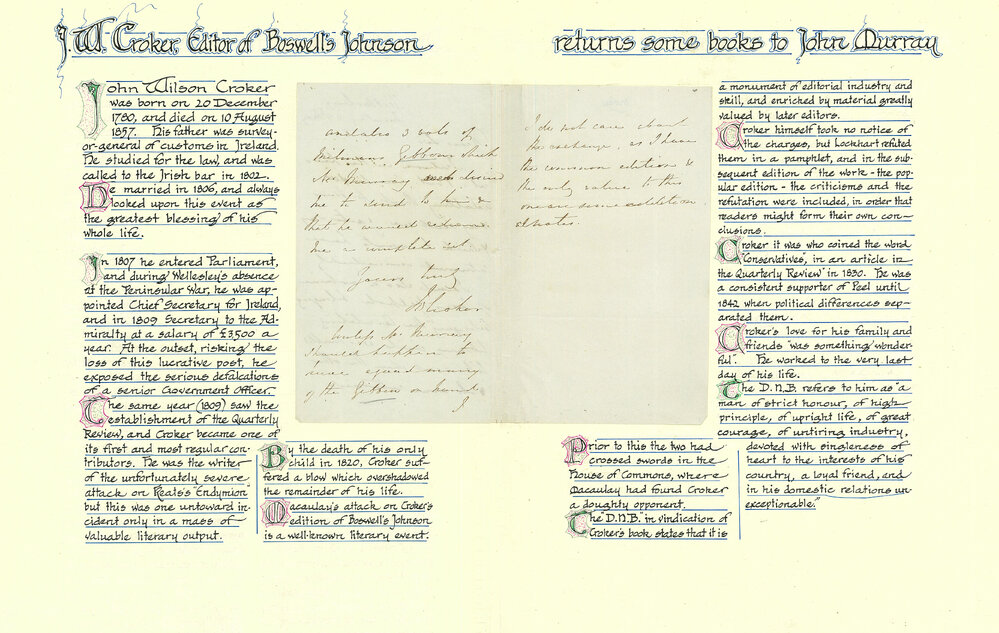 J. W. Croker, Editor of Boswell's Johnson
returns some books to John Murray
John Wilson Croker
was born on 20 December
1780, and died on 10 August
1857. His father was survey-
or-general of customs in Ireland.
He studied for the law, and was
called to the Irish bar in 1802.
He married in 1806, and always
looked upon this event as
the greatest blessing of his
whole life.
In 1807 he entered Parliament,
and during Wellesley's absence
at the Peninsular War, he was ap-
pointed Chief Secretary for Ireland,
and in 1809 Secretary to the Ad-
miralty at a salary of £3,500 a
year. At the outset, risking the
loss of this lucrative post, he
exposed the serious defalcations
of a senior Government Officer.
The same year (1809) saw the
establishment of the Quarterly
Review, and Croker became one of
its first and most regular con-
tributors. He was the writer
of the unfortunately severe
attack on Keats's "Endymion"
but this was one untoward in-
cident only in a mass of
valuable literary output.
By the death of his only
child in 1820, Croker suf-
fered a blow which overshadowed
the remainder of his life.
Macaulay's attack on Croker's
edition of Boswell's Johnson
is a well-known literary event.
and also 3 vols of
Milmans Gibbon which
Mr Murray desired
me to send to him &
that he would return
me a complete set.
Yours truly
JW Croker
unless Mr Murray
should happen to
have
of the Gibbon on hand
I
I do not care about
the exchange, as I have
the common edition &
the only value to this
one are some additional
notes
Prior to this the two had
crossed swords in the
House of Commons, where
Macaulay had found Croker
a doughty opponent.
The "D.N.B." in vindication of
Croker's book states that it is
a monument of editorial industry and
skill, and enriched by material greatly
valued by later editors.
Croker himself took no notice of
the charges, but Lockhart refuted
them in a pamphlet, and in the sub-
sequent edition of the work - the pop-
ular edition - the criticisms and the
refutation were included, in order that
readers might form their own con-
clusions.
Croker it was who coined the word
'Conservatives', in an article in
the 'Quarterly Review' in 1830. He was
a consistent supporter of Peel until
1842 when political differences sep-
arated them.
Croker's love for his family and
friends "was something wonder-
ful". He worked to the very last
day of his life.
The D.N.B. refers to him as "a
man of strict honour, of high
principle, of upright life, of great
courage, of untiring industry,
devoted with singleness of
heart to the interests of his
country, a loyal friend, and
in his domestic relations un-
exceptionable."